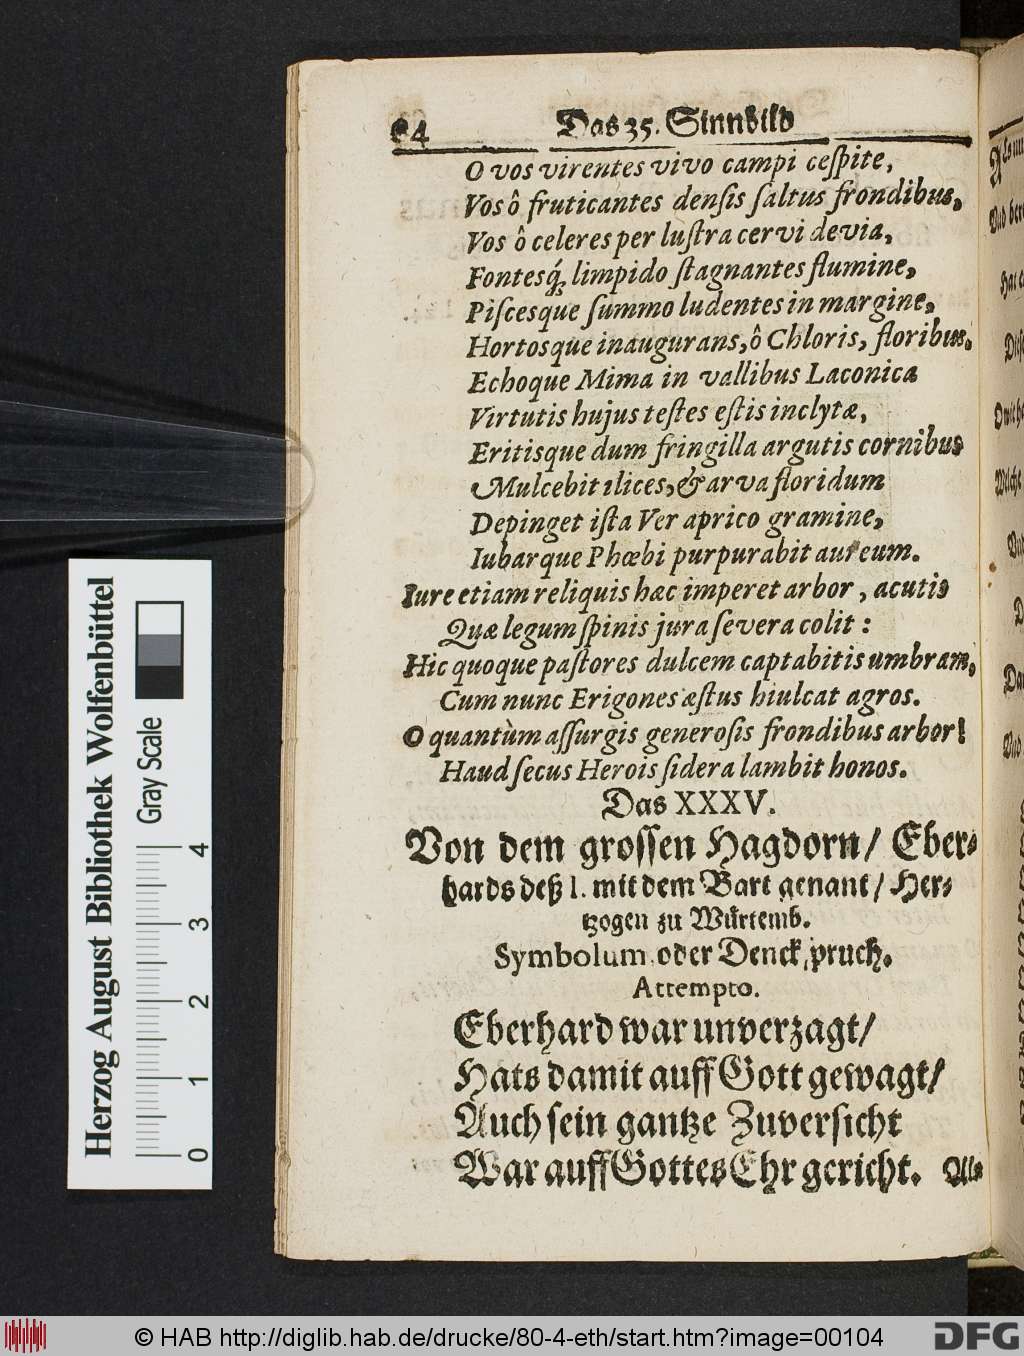 84 Das 35. Sinnbild
O vos virentes vivo campi ceſpite,
Vos ô fruticantes denſis ſaltus frondibus,
Vos ô celeres per luſtra cervi devia,
Fontesq́; limpido ſtagnantes flumine,
Piſcesque ſummo ludentes in margine,
Hortosque inaugurans, ô Chloris, floribus,
Echoque Mima in vallibus Laconica
Virtutis hujus teſtes eſtis inclytæ,
Eritisque dum fringilla argutis cornibus
Mulcebit ilices, & arva floridum
Depinget iſta Ver aprico gramine,
Iubarque Phœbi purpurabit aureum.
Iure etiam reliquis hæc imperet arbor, acutis
Quæ legum ſpinis jura ſevera colit:
Hic quoque paſtores dulcem captabitis umbram,
Cum nunc Erigones æſtus hiulcat agros.
O quantùm aſſurgis generoſis frondibus arbor!
Haud ſecus Herois ſidera lambit honos.
Das XXXV.
Von dem groſſen Hagdorn/ Eber-
hards deß 1. mit dem Bart genant/ Her-
tzogen zu Würtemb.
Symbolum oder Denckſpruch.
Attempto.
Eberhard war unverzagt/
Hats damit auff Gott gewagt/
Auch ſein gantze Zuverſicht
War auff Gottes Ehr gericht. Al-
Herzog August Bibliothek Wolfenbüttel
Gray Scale
0 1 2 3 4
© HAB http://diglib.hab.de/drucke/80-4-eth/start.htm?image=00104
DFG